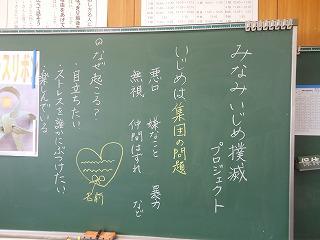 みなみいじめ撲滅
プロジェクト
いじめは集団の問題
悪口 嫌なこと 暴力
無視 仲間はずれ など
Qなぜ起こる？
・目立ちたい
・ストレスを誰かにぶつけたい
・楽しんでいる
名前
スリボ